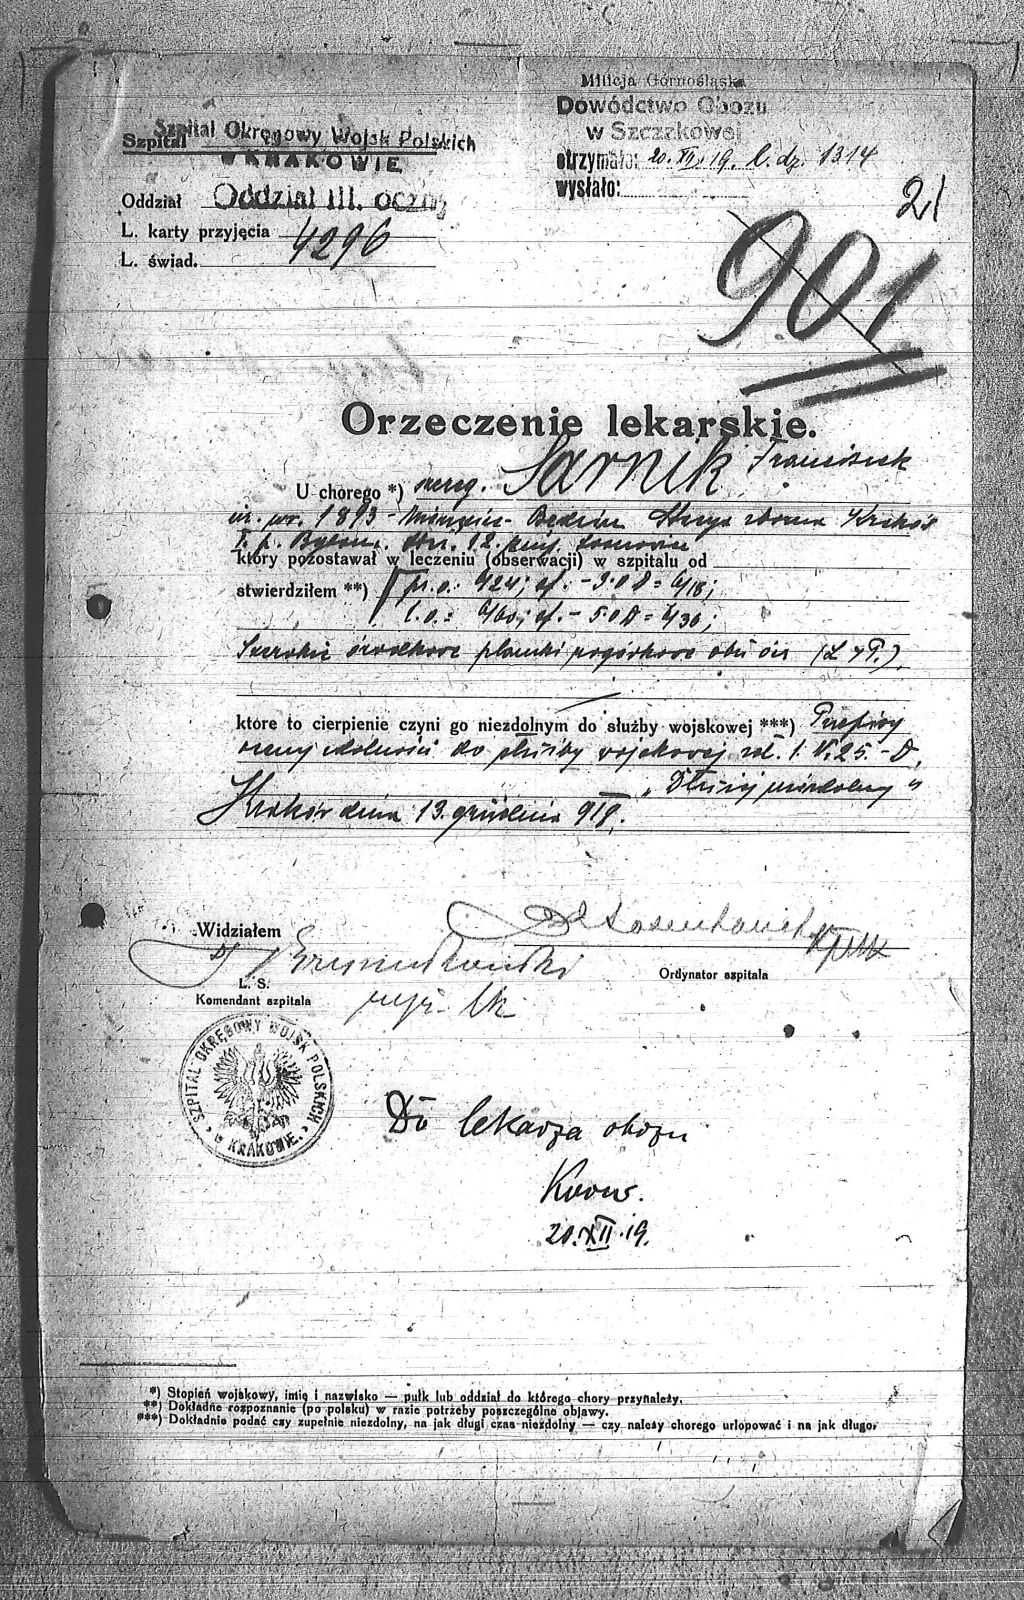 Milicja Górnośląska
Dowództwo Obozu
w Szczakowej
otrzymało: 20. XII. 19. l. dz. 1314
wysłało:
Szpital Szpital Okręgowy Wojsk Polskich
w KRAKOWIE
Oddział Oddział III. oczny
L. karty przyjęcia 4296
L. świad.
21
901
Orzeczenie lekarskie.
U chorego *) szereg. Sarnik Franciszek
ur. 1893 Kraków
który pozostawał w leczeniu (obserwacji) w szpitalu od
stwierdziłem **) p. o.: 6/24; cf. - 3·0 D = 6/18;
l. o.: 6/60; cf. - 5·0 D = 6/36;
Szerokie środkowe plamki rogówkowe obu ócz (L i P.).
które to cierpienie czyni go niezdolnym do służby wojskowej ***) Przepisy
oceny zdolności do służby wojskowej rdl. 1. V. 25. - D.
Kraków dnia 13. grudnia 919.
Widziałem
L. S.
Komendant szpitala
Ordynator szpitala
SZPITAL OKRĘGOWY WOJSK POLSKICH
W KRAKOWIE.
Do lekarza obozu
20. XII. 19.
*) Stopień wojskowy, imię i nazwisko — pułk lub oddział do którego chory przynależy.
**) Dokładne rozpoznanie (po polsku) w razie potrzeby poszczególne objawy.
***) Dokładnie podać czy zupełnie niezdolny, na jak długi czas niezdolny — czy należy chorego urlopować i na jak długo.